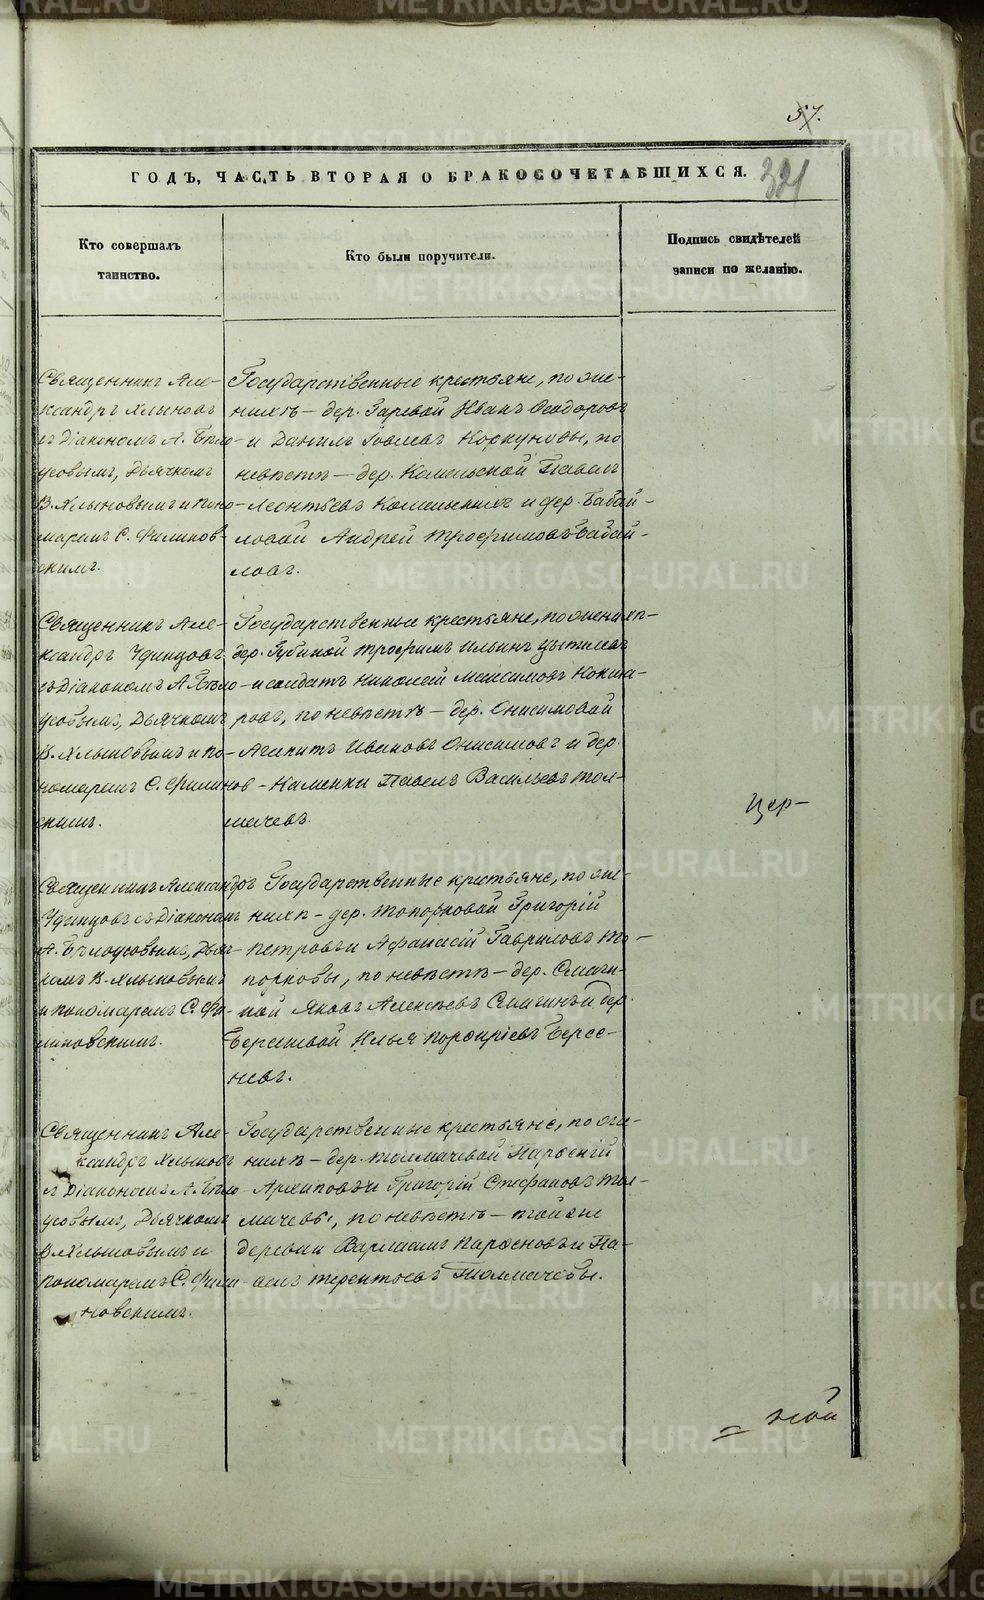 57.
321
ГОДЪ, ЧАСТЬ ВТОРАЯ О БРАКОСОЧЕТАВШИХСЯ.
Кто совершалъ
таинство.
Кто были поручители.
Подпись свидѣтелей
записи по желанію.
Священникъ Але-
ксандръ Хлыновъ
съ Діакономъ А. Бѣло-
усовымъ, Дьячкомъ
В. Хлыновымъ и поно-
маремъ С. Филинов-
скимъ.
Государственные крестьяне, по же-
нихѣ – дер. Зыревой Иванъ Ѳедоровъ
и Данилъ Іовлевъ Коркуновы, по
невѣстѣ – дер. Камельской Павелъ
Леонтьевъ Камельскихъ и дер. Бабай-
ловой Андрей Трофимовъ Бабай-
ловъ.
Священникъ Але-
ксандръ Удинцовъ
съ Діакономъ А. Бѣло-
усовымъ, Дьячкомъ
В. Хлыновымъ и по-
номаремъ С. Филинов-
скимъ.
Государственные крестьяне, по женихѣ –
дер. Губиной Трофимъ Ильинъ
и солдатъ Николай Максимовъ Кокша-
ровъ, по невѣстѣ – дер. Онисимовой
Агапитъ Ивановъ Онисимовъ и дер.
Каменки Павелъ Васильевъ Тол-
мачевъ.
Цер-
Священникъ Александръ
Удинцовъ съ Діакономъ
А. Бѣлоусовымъ, Дьяч-
комъ В. Хлыновымъ
и пономаремъ С. Фи-
линовскимъ.
Государственные крестьяне, по же-
нихѣ – дер. Топорковой Григорій
Петровъ и Афанасій Гавриловъ То-
порковы, по невѣстѣ – дер. Смаги-
ной Яковъ Алексѣевъ Смагинъ и дер.
Береневой Илья Порфиріевъ Берсе-
невъ.
Священникъ Але-
ксандръ Хлыновъ
съ Діакономъ А. Бѣло-
усовымъ, Дьячкомъ
В. Хлыновымъ и
пономаремъ С. Фили-
новскимъ.
Государственные крестьяне, по же-
нихѣ – дер. Толмачевой Парфеній
Архиповъ и Григорій Стефановъ Тол-
мачевы, по невѣстѣ – той же
деревни Варлаамъ Парфеновъ и Па-
велъ Терентьевъ Толмачевы.
ной